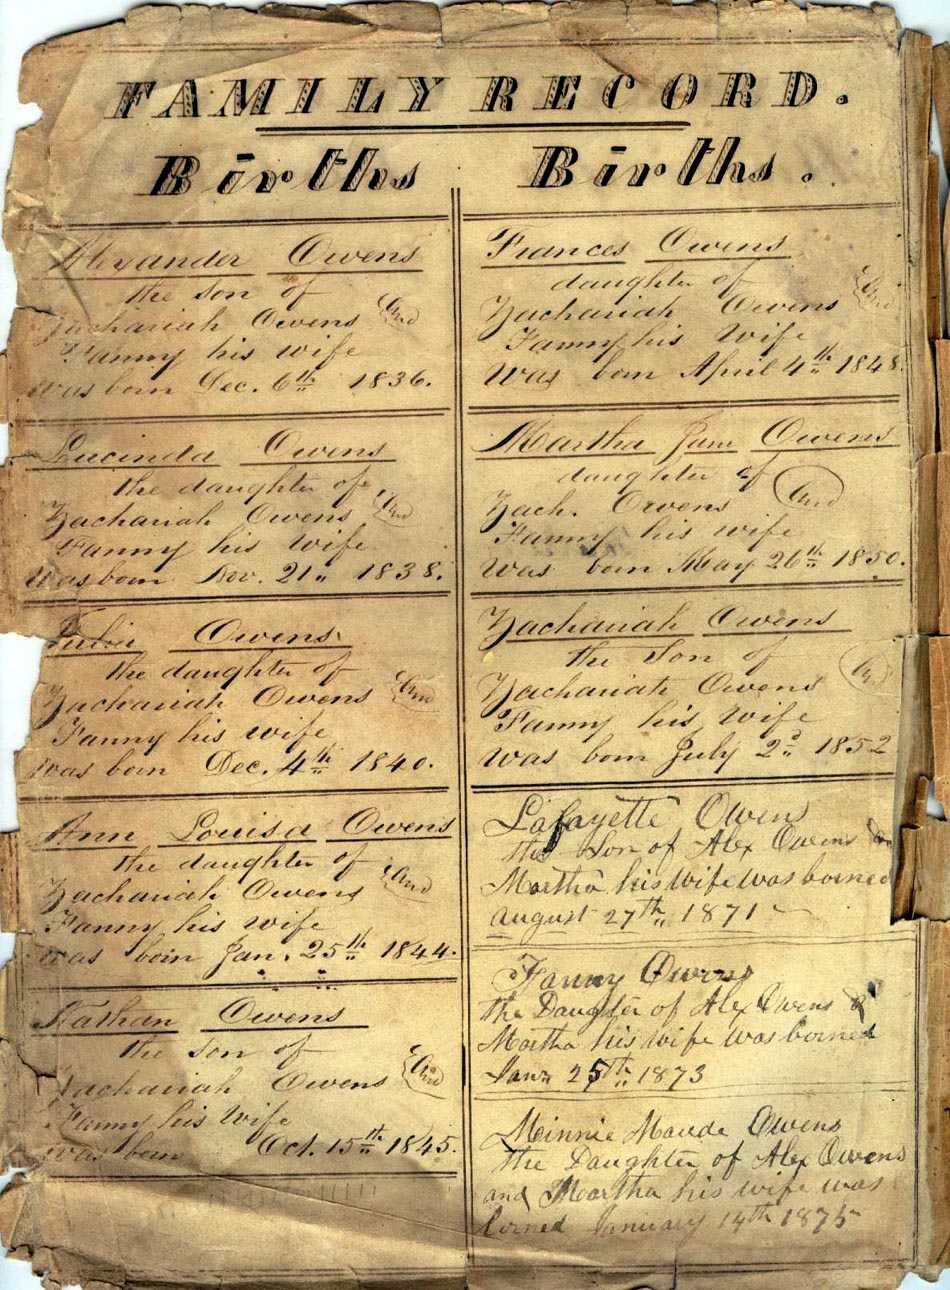 FAMILY RECORD.
Births
Alexander Owens
the son of
Zachariah Owens and
Fanny his wife
was born Dec. 6th 1836.
Lucinda Owens
the daughter of
Zachariah Owens and
Fanny his wife
was born Nov. 21 1838.
Owens
the daughter of
Zachariah Owens and
Fanny his wife
was born Dec. 4th 1840.
Ann Louisa Owens
the daughter of
Zachariah Owens and
Fanny his wife
was born Jan. 25th 1844.
Nathan Owens
the son of
Zachariah Owens and
Fanny his wife
was born Oct. 15th 1845.
Births.
Frances Owens
daughter of
Zachariah Owens and
Fanny his wife
was born April 4th 1848.
Martha Jane Owens
daughter of
Zach. Owens and
Fanny his wife
was born May 26th 1850.
Zachariah Owens
the son of
Zachariah Owens and
Fanny his wife
was born July 2d 1852
Lafayette Owens
the Son of Alex Owens
Martha his wife was borned
august 27th 1871
Fanny Owens
the Daughter of Alex Owens &
Martha his wife was borned
Jan 25th 1873
Minnie Maude Owens
the Daughter of Alex Owens
and Martha his wife was
borned January 14th 1875